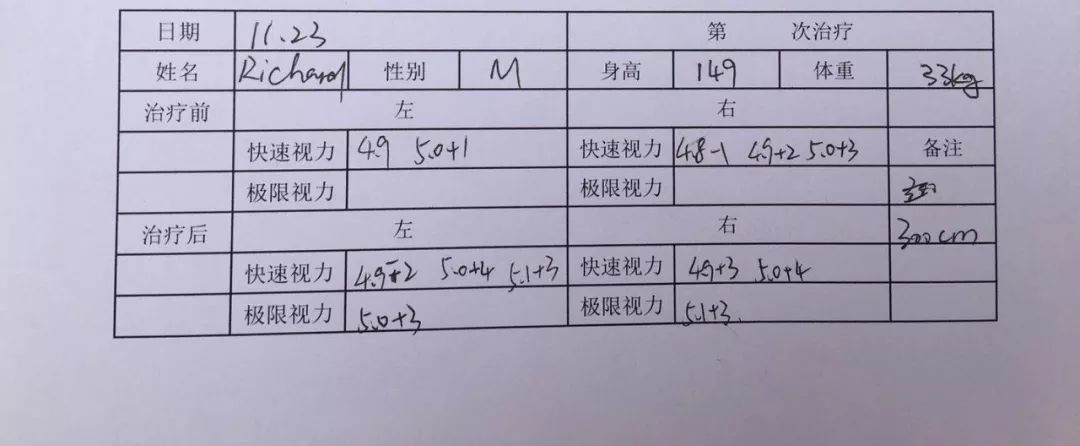 日期 11.23 第 次治疗
姓名 Richard 性别 M 身高 149 体重 33kg
治疗前 左 右
快速视力 4.9 5.0+1 快速视力 4.8-1 4.9+2 5.0+3 备注
极限视力 极限视力
治疗后 左 右 300cm
快速视力 4.9+2 5.0+4 5.1+3 快速视力 4.9+3 5.0+4
极限视力 5.0+3 极限视力 5.1+3